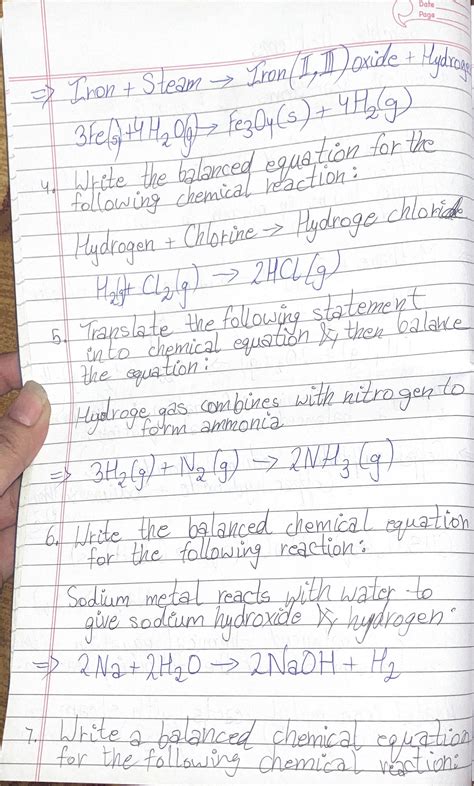 Date
Page
=> Iron + Steam → Iron (II, III) oxide + Hydroge
3Fe(s)+4H₂O(g)→ Fe₃O₄(s) + 4H₂(g)
4. Write the balanced equation for the
following chemical reaction:
Hydrogen + Chlorine → Hydroge chloride
H₂(g)+ Cl₂(g) → 2HCl(g)
5. Translate the following statement
into chemical equation & then balance
the equation:
Hydroge gas combines with nitrogen to
form ammonia
=> 3H₂(g) + N₂(g) → 2NH₃(g)
6. Write the balanced chemical equation
for the following reaction:
Sodium metal reacts with water to
give sodium hydroxide & hydrogen:
=> 2Na + 2H₂O → 2NaOH + H₂
7. Write a balanced chemical equation
for the following chemical reaction: